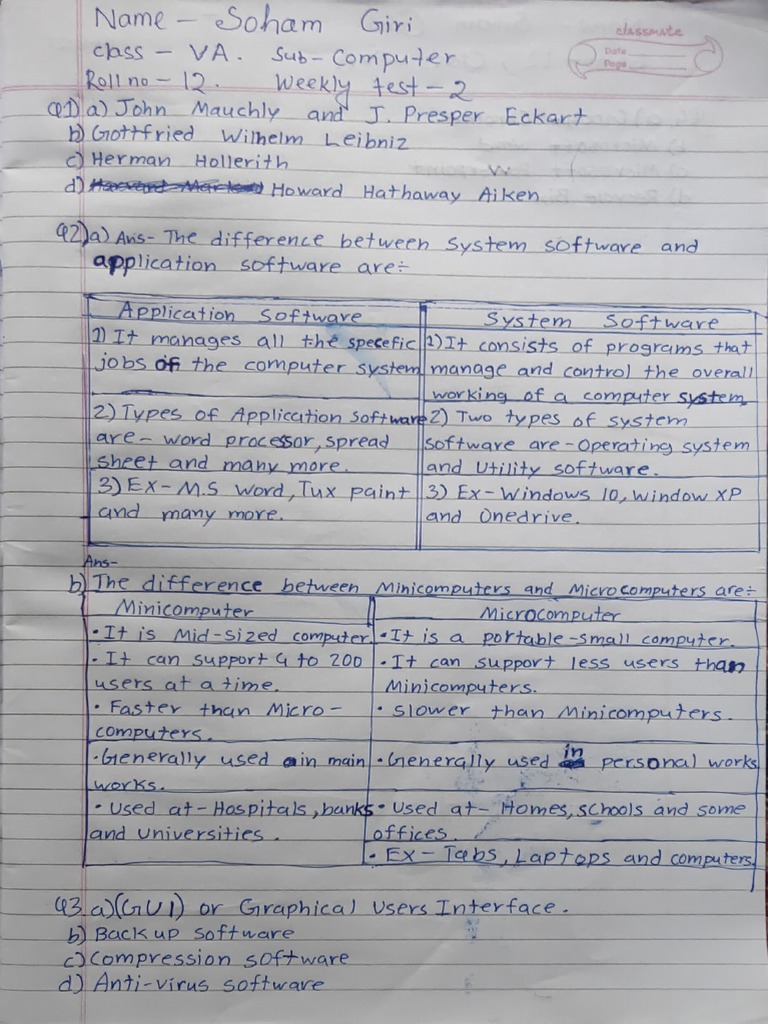 Name - Soham Giri
classmate
Date
Page
class - VA. Sub - Computer
Roll no - 12. Weekly test - 2
Q1) a) John Mauchly and J. Presper Eckart
b) Gottfried Wilhelm Leibniz
c) Herman Hollerith
d) Howard Hathaway Aiken
Q2) a) Ans - The difference between system software and
application software are:-
Application Software
1) It manages all the specefic
jobs of the computer system
2) Types of Application Software
are - word processor, spread
sheet and many more.
3) Ex - M.S word, Tux paint
and many more.
System Software
1) It consists of programs that
manage and control the overall
working of a computer system
2) Two types of system
software are - Operating system
and Utility software.
3) Ex - Windows 10, Window XP
and Onedrive.
Ans-
b) The difference between Minicomputers and Microcomputers are:-
Minicomputer
• It is Mid-sized computer
• It can support 4 to 200
users at a time.
• Faster than Micro-
computers.
• Generally used in main
works.
• Used at - Hospitals, banks
and universities.
Microcomputer
• It is a portable-small computer.
• It can support less users than
Minicomputers.
• Slower than Minicomputers.
• Generally used in personal works
• Used at - Homes, schools and some
offices.
• Ex - Tabs, Laptops and computers
Q3. a) (GUI) or Graphical Users Interface.
b) Back up software
c) Compression software
d) Anti-virus software